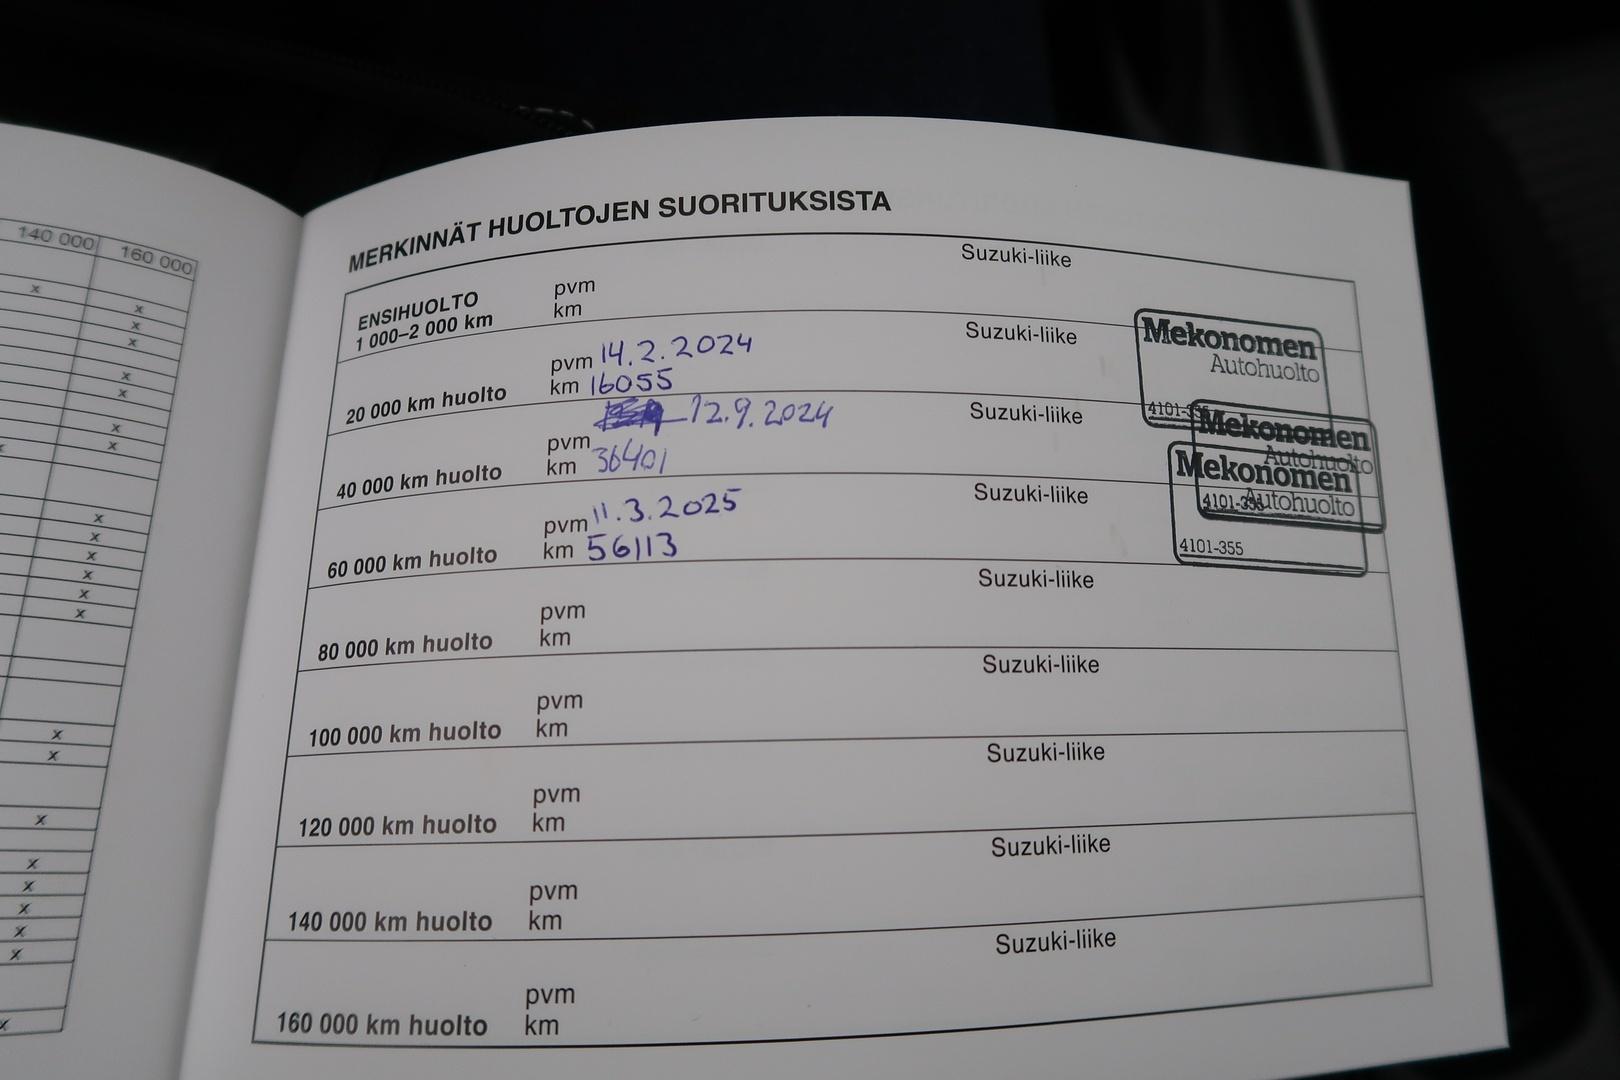 140 000 160 000
MERKINNÄT HUOLTOJEN SUORITUKSISTA
Suzuki-liike
ENSIHUOLTO pvm
1 000–2 000 km km
Suzuki-liike
Mekonomen
Autohuolto
4101-355
pvm 14.2.2024
20 000 km huolto km 16055
Suzuki-liike
Mekonomen
Autohuolto
4101-355
12.9.2024
pvm
40 000 km huolto km 36401
Suzuki-liike
Mekonomen
Autohuolto
4101-355
pvm 11.3.2025
60 000 km huolto km 56113
Suzuki-liike
pvm
80 000 km huolto km
Suzuki-liike
pvm
100 000 km huolto km
Suzuki-liike
pvm
120 000 km huolto km
Suzuki-liike
pvm
140 000 km huolto km
Suzuki-liike
pvm
160 000 km huolto km